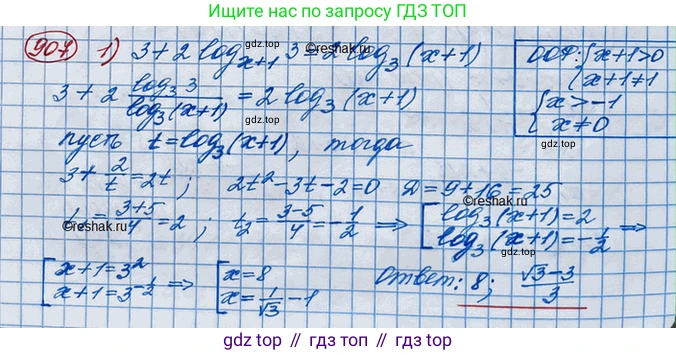 Ищите нас по запросу ГДЗ ТОП
907 1) 3+2 log_{x+1} 3 = 2 log_3 (x+1)
ООФ: { x+1>0
{ x+1≠1
{ x>-1
{ x≠0
3 + 2 log_3 3 / log_3 (x+1) = 2 log_3 (x+1)
пусть t=log_3 (x+1), тогда
3 + 2/t = 2t; 2t²-3t-2=0 Д=9+16=25
t_1 = (3+5)/4 = 2, t_2 = (3-5)/4 = -1/2 ⇒ [ log_3 (x+1)=2
[ log_3 (x+1)=-1/2 ⇒
[ x+1=3²
[ x+1=3^{-1/2} ⇒ [ x=8
[ x=1/√3 -1
Ответ: 8; (√3-3)/3
©reshak.ru
gdz.top
©reshak.ru
gdz.top
gdz.top
gdz.top
©reshak.ru
gdz.top
©reshak.ru
gdz.top
gdz.top // гдз.топ // gdz.top // гдз.топ